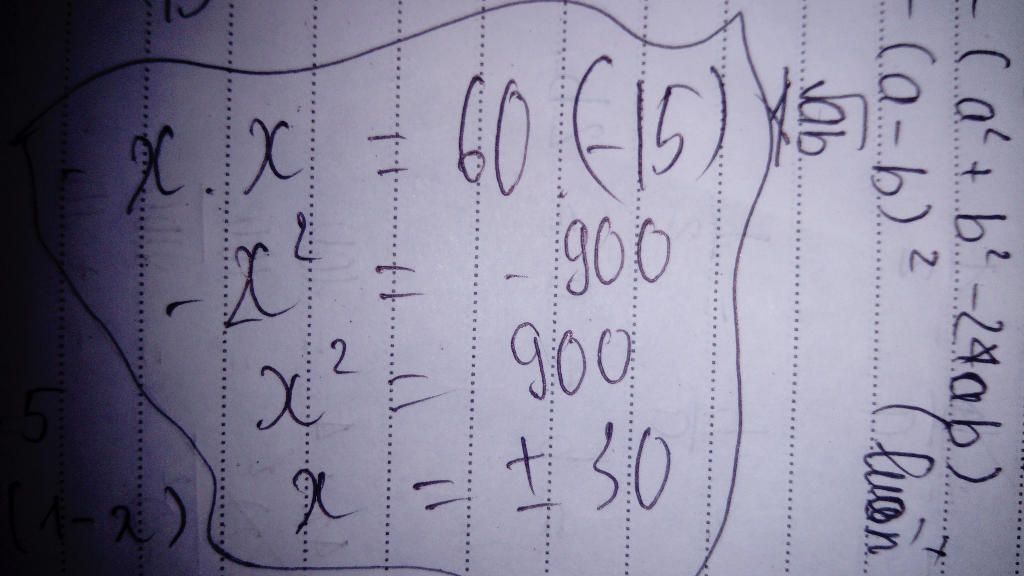 - x . x = 60 . (-15)
- x² = - 900
x² = 900
x = ± 30
- (a² + b² - 2ab)
- (a - b)²
√ab
-5
(1 - x)